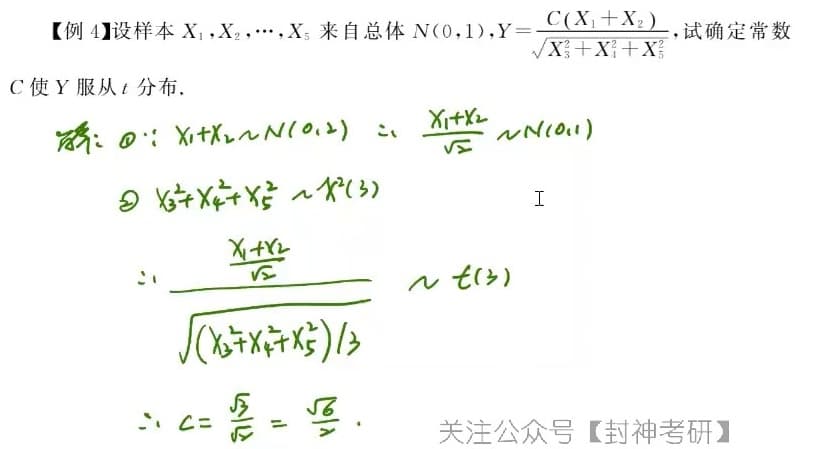 【例 4】设样本 X₁,X₂,…,X₅ 来自总体 N(0,1),Y=C(X₁+X₂)/√(X₃²+X₄²+X₅²),试确定常数
C 使 Y 服从 t 分布.
解: ①∵ X₁+X₂~N(0,2) ∴ (X₁+X₂)/√2 ~N(0,1)
② X₃²+X₄²+X₅² ~χ²(3)
∴ ((X₁+X₂)/√2)/√((X₃²+X₄²+X₅²)/3) ~ t(3)
∴ C= √3/√2 = √6/2 .
关注公众号【封神考研】